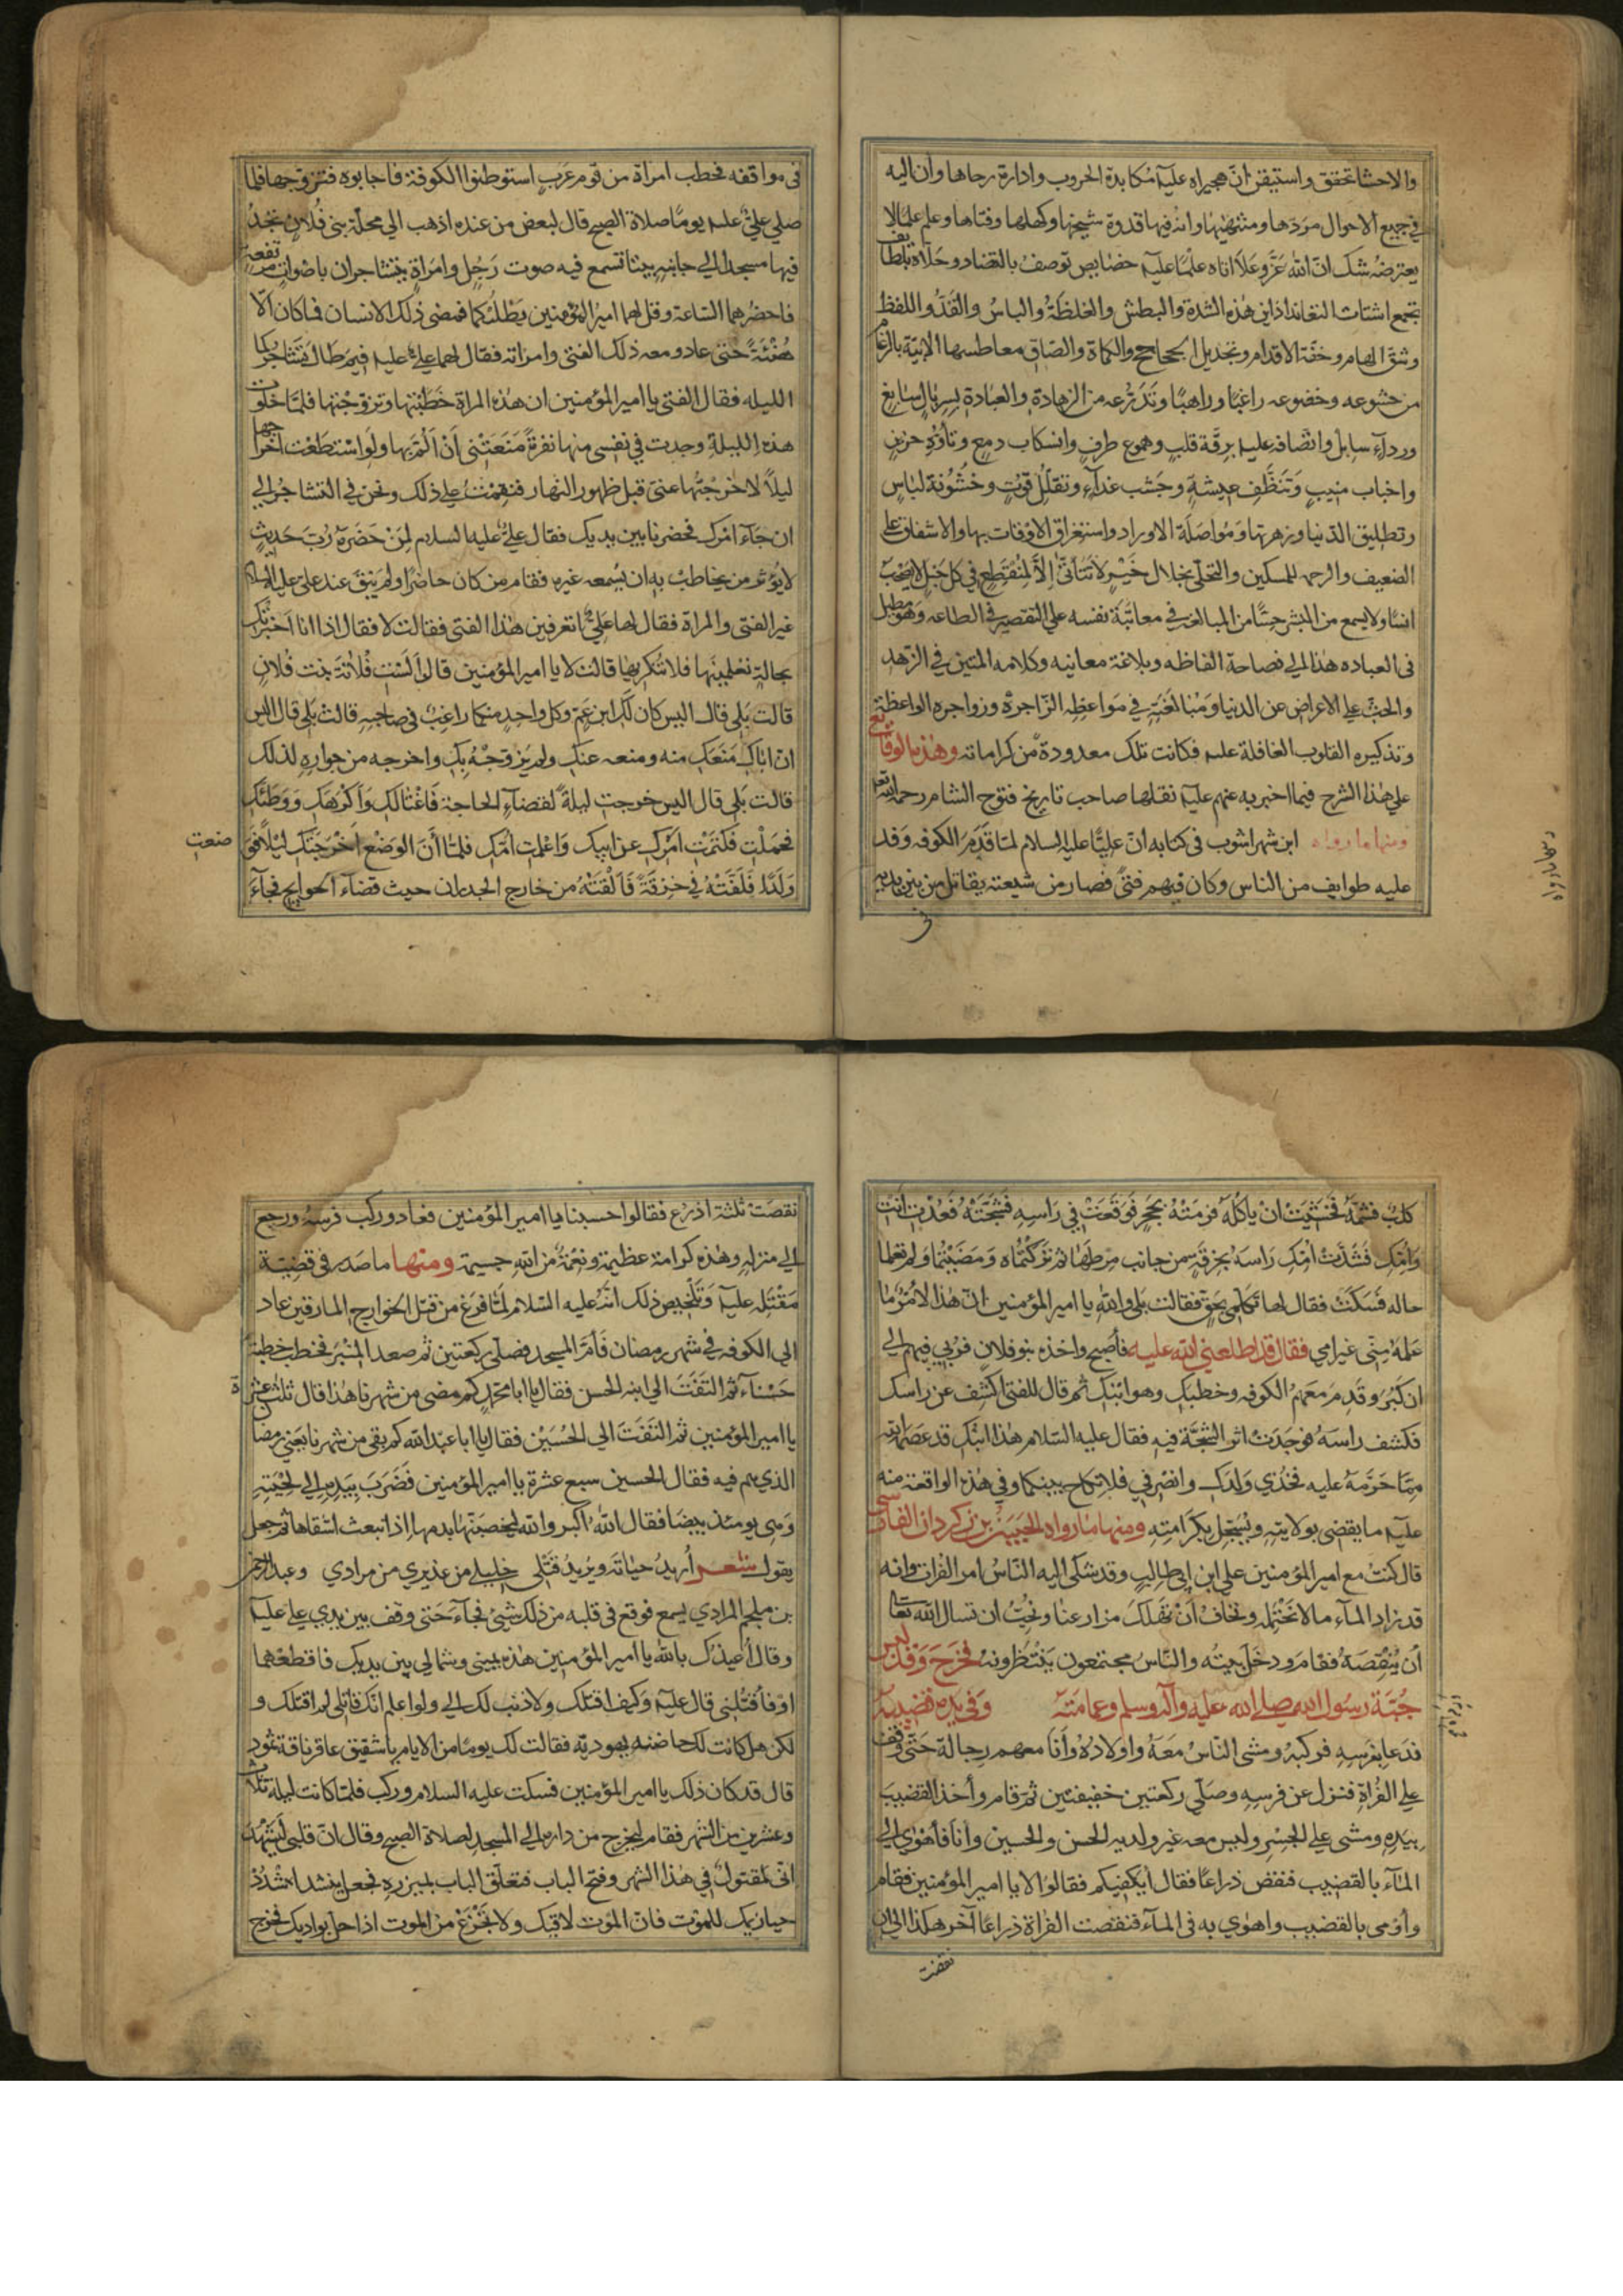 والاحشا تحقق واستيقن انّ هجيراه عليه مكابدة الحروب وادارة رحاها وان اليه
في جميع الاحوال مردّها ومنتهيٰها وانه فيها قدوة شيخها وكهلها وفتاها وعلم علمًا لا
يعترضه شك انّ الله عزّ وعلا اتاه علمًا عليه خصايص توصف بالتضاد وحلّاه بلطايف
تجمع اشتات التعاند اذ اين هذه الشدة والبطش والغلظة والباس والقدّ واللفظ
وشق الهام وخفّة الاقدام وتجديل الجحاجح والكماة والصاق معاطسها الابيّة بالرغام
من خشوعه وخضوعه راغبًا وراهبًا وتدرّعه من الزهادة والعبادة بسربال سابغ
وردآء سابل واتصافه عليه برقّة قلب وهموع طرف وانسكاب دمع وتاوّه حزين
واخبات منيب وتنظّف عيشة وجشب غدآء وتقلّل قوت وخشونة لباس
وتطليق الدنيا وزهرتها ومواصلة الاوراد واستغراق الاوقات بها والاشفاق على
الضعيف والرحمه للمسكين والتحلّي بخلال خير لا تتأتّى الّا لمنقطع في كل جبل لا يصحب
انسًا ولا يسمع من البشر حسًّا مع المبالغه في معاتبة نفسه علي التقصير في الطاعه وهو مطيل
في العباده هذا الي فصاحة الفاظه وبلاغة معانيه وكلامه المتين في الزهد
والحثّ علي الاعراض عن الدنيا ومبالغته في مواعظه الزاجرة وزواجره الواعظة
وتذكيره القلوب الغافلة عليه فكانت تلك معدودة من كراماته وهذه الوقايع
علي هذا الشرح فيما اخبر به عنهم عليه نقلها صاحب تاريخ فتوح الشام رحمه الله تعه
ومنها ما رواه ابن شهراشوب في كتابه انّ عليًّا عليه السلام لمّا قدم الكوفه وفد
عليه طوايف من الناس وكان فيهم فتىً فصار من شيعته يقاتل من بين يديه
في
ومنها ما رواه
في مواقفه فخطب امراة من قوم عرب استوطنوا الكوفة فاجابوه فتزوجها فلما
صلي عليٌّ عليه يومًا صلاة الصبح قال لبعض من عنده اذهب الي محلّة بني فلان تجد
فيها مسجدا الي جانبه بيتا تسمع فيه صوت رجل وامراة يتشاجران باصوات مرتفعة
فاحضرهما الساعة وقل لهما امير المؤمنين يطلبكما فمضى ذلك الانسان فما كان الّا
هنئةً حتى عاد ومعه ذلك الفتى وامراته فقال لهما علي عليه فيم طال تشاجركما
الليله فقال الفتى يا امير المؤمنين ان هذه المراة خطبتها وتزوجتها فلما خلوت
هذه الليلة وجدت في نفسي منها نفرةً منعتني أن ألمّ بها ولو استطعت اخراجها
ليلاً لاخرجتها عني قبل ظهور النهار فنقمت علي ذلك ونحن في التشاجر الي
ان جآء امرك فحضرنا بين يديك فقال عليّ عليه السلام لمن حضره ربّ حديث
لا يؤثر من يخاطب به ان يسمعه غيره فقام من كان حاضرًا ولم يبق عند علي عليه السلام
غير الفتى والمراة فقال لها عليٌّ اتعرفين هذا الفتى فقالت لا فقال اذا انا اخبرتك
بحالة تعلمينها فلا تنكريها قالت لا يا امير المؤمنين قال الست فلانة بنت فلان
قالت بلي قال اليس كان لك ابن عم وكل واحد منكما راغب في صاحبه قالت بلي قال اليس
انّ اباك منعك منه ومنعه عنك ولم يزوجه بك واخرجه من جواره لذلك
قالت بلي قال اليس خرجت ليلةً لقضآء الحاجة فاغتالك وأكرهك ووطئك
فحملت فكتمت امرك عن ابيك واعلمت امّك فلمّا أنّ الوضع اخرجتك ليلًا فوضعت
ولدًا فلفّته في خرقة فالقته من خارج الجدران حيث قضاء الحوايج فجآء
كلب فشمّه فخشيت ان ياكله فرمته بحجر فوقعت في راسه فشجّته فعدت انت
وامّك فشدّت امّك راسه بخرقة من جانب مرطها ثم تركتماه ومضيتما ولم تعلما
حاله فسكتت فقال لها تكلّمي بحقّ فقالت بلي والله يا امير المؤمنين انّ هذا الامر ما
علمه منّي غير امي فقال قد اطلعني الله عليه فأصبح واخذه بنو فلان فربي فيهم الي
ان كبر وقدم معهم الكوفه وخطبك وهو ابنك ثم قال للفتى اكشف عن راسك
فكشف راسه فوجدت اثر الشجّة فيه فقال عليه السلام هذا ابنك قد عصمه الله
ممّا حرّمه عليه فخذي ولدك وانصرفي فلا نكاح بينكما وفي هذه الواقعة منه
عليه ما يقضى بولايته ويسجّل بكرامته ومنها ما رواه الحسين بن زكردان الفارسي
قال كنت مع امير المؤمنين علي ابن ابي طالب وقد شكى اليه الناس امر الفرات وانه
قد زاد المآء ما لا نحتمله ونخاف أن تهلك مزارعنا ونحبّ ان تسال الله تعالى
أن ينقصه فقام ودخل بيته والناس مجتمعون ينتظرونه فخرج وقد لبس
جبّة رسول الله صلى الله عليه وآله وسلم وعمامته وفي يده قضيبه
فدعا بفرسه فركبه ومشى الناس معه واولاده وأنا معهم رجالة حتى وقف
علي الفراة فنزل عن فرسه وصلّي ركعتين خفيفتين ثم قام وأخذ القضيب
بيده ومشى علي الجسر وليس معه غير ولديه الحسن والحسين وأنا فأهوي الي
المآء بالقضيب فنقص ذراعًا فقال أيكفيكم فقالوا لا يا امير المؤمنين فقام
وأومى بالقضيب واهوي به في المآء فنقصت الفراة ذراعًا آخر هكذا الي ان
نقصت
نقصت ثلثة اذرع فقالوا حسبنا يا امير المؤمنين فعاد وركب فرسه ورجع
الي منزله وهذه كرامة عظيمة ونعمة من الله جسيمة ومنها ما صدر في قضيّة
مقتله عليه وتلخيص ذلك أنّه عليه السلام لمّا فرغ من قتل الخوارج المارقين عاد
الي الكوفه في شهر رمضان فأمّ المسجد فصلّي ركعتين ثم صعد المنبر فخطب خطبة
حسنآء ثم التفت الي ابنه الحسن فقال يا ابا محمد كم مضى من شهرنا هذا قال ثلث عشرة
يا امير المؤمنين ثم التفت الي الحسين فقال يا ابا عبد الله كم بقي من شهرنا يعني رمضان
الذي هم فيه فقال الحسين سبع عشرة يا امير المؤمنين فضرب بيده الي لحيته
وهي يومئذ بيضا فقال الله اكبر والله ليخضبنها بدمها اذا انبعث اشقاها ثم جعل
يقول شعر أريد حياته ويريد قتلى خليلي من عذيري من مرادي وعبد الرحمن
بن ملجم المرادي يسمع فوقع في قلبه من ذلك شئ فجآء حتى وقف بين يدي علي عليه
وقال أعيذك بالله يا امير المؤمنين هذه يميني وشمالي بين يديك فاقطعهما
او فأقتلني قال عليه وكيف اقتلك ولا ذنب لك الي ولو اعلم انك قاتلي لم اقتلك و
لكن هل كانت لك حاضنه يهوديّة فقالت لك يومًا من الايام يا شقيق عاقر ناقة ثمود
قال قد كان ذلك يا امير المؤمنين فسكت عليه السلام وركب فلمّا كانت ليلة ثلاث
وعشرين من الشهر فقام ليخرج من داره الي المسجد لصلاة الصبح وقال انّ قلبي ليشهد
انّى لمقتول في هذا الشهر وفتح الباب فتعلّق الباب بميزره فجعل ينشد اشدد
حيازيمك للموت فانّ الموت لاقيك ولا تجزع من الموت اذا حلّ بواديك فخرج